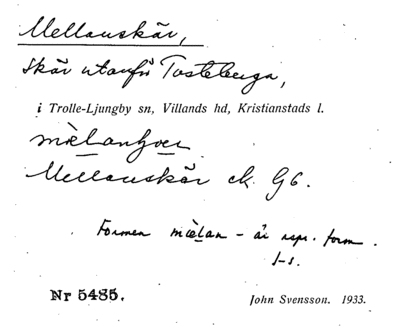 Mellanskär,
skär utanför Tosteberga,
i Trolle-Ljungby sn, Villands hd, Kristianstads l.
Mellanskär ek. G6.
Formen mælan - är uspr. form.
J-s.
Nr 5485.
John Svensson. 1933.